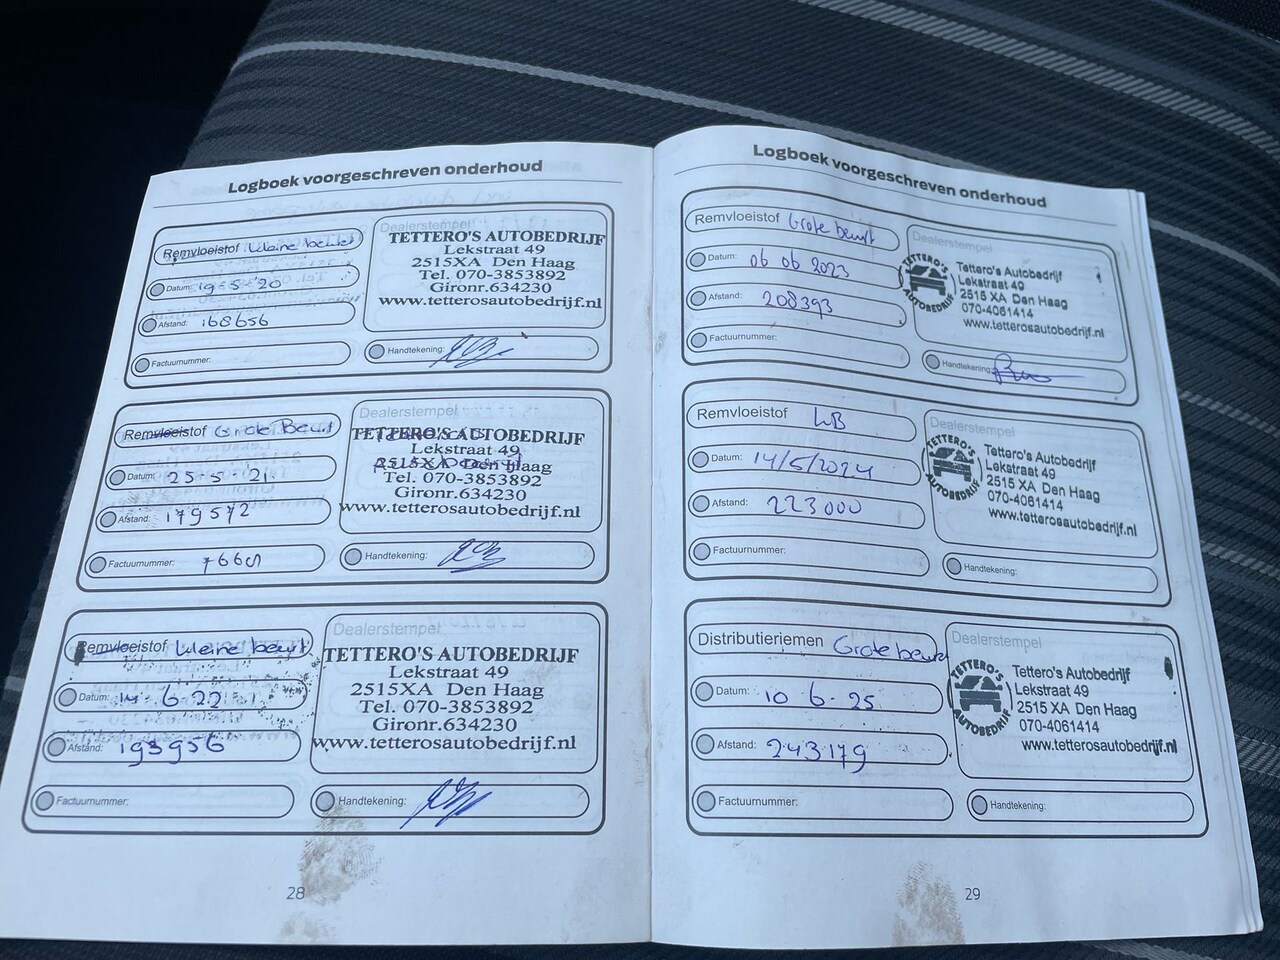 Logboek voorgeschreven onderhoud
Remvloeistof kleine beurt
Datum: 19-5-'20
Afstand: 168656
Factuurnummer:
Dealerstempel
TETTERO'S AUTOBEDRIJF
Lekstraat 49
2515XA Den Haag
Tel. 070-3853892
Gironr.634230
www.tetterosautobedrijf.nl
Handtekening:
Remvloeistof Grote Beurt
Datum: 25-5-'21
Afstand: 179572
Factuurnummer:
Dealerstempel
TETTERO'S AUTOBEDRIJF
Lekstraat 49
2515XA Den Haag
Tel. 070-3853892
Gironr.634230
www.tetterosautobedrijf.nl
Handtekening:
Remvloeistof kleine beurt
Datum: 14-6-22
Afstand: 193956
Factuurnummer:
Dealerstempel
TETTERO'S AUTOBEDRIJF
Lekstraat 49
2515XA Den Haag
Tel. 070-3853892
Gironr.634230
www.tetterosautobedrijf.nl
Handtekening:
28
Logboek voorgeschreven onderhoud
Remvloeistof Grote beurt
Datum: 06 06 2023
Afstand: 208393
Factuurnummer:
Dealerstempel
TETTERO'S
AUTOBEDRIJF
Tettero's Autobedrijf
Lekstraat 49
2515 XA Den Haag
070-4061414
www.tetterosautobedrijf.nl
Handtekening:
Remvloeistof LB
Datum: 14/5/2024
Afstand: 223000
Factuurnummer:
Dealerstempel
TETTERO'S
AUTOBEDRIJF
Tettero's Autobedrijf
Lekstraat 49
2515 XA Den Haag
070-4061414
www.tetterosautobedrijf.nl
Handtekening:
Distributieriemen Grote beurt
Datum: 10-6-25
Afstand: 243179
Factuurnummer:
Dealerstempel
TETTERO'S
AUTOBEDRIJF
Tettero's Autobedrijf
Lekstraat 49
2515 XA Den Haag
070-4061414
www.tetterosautobedrijf.nl
Handtekening:
29